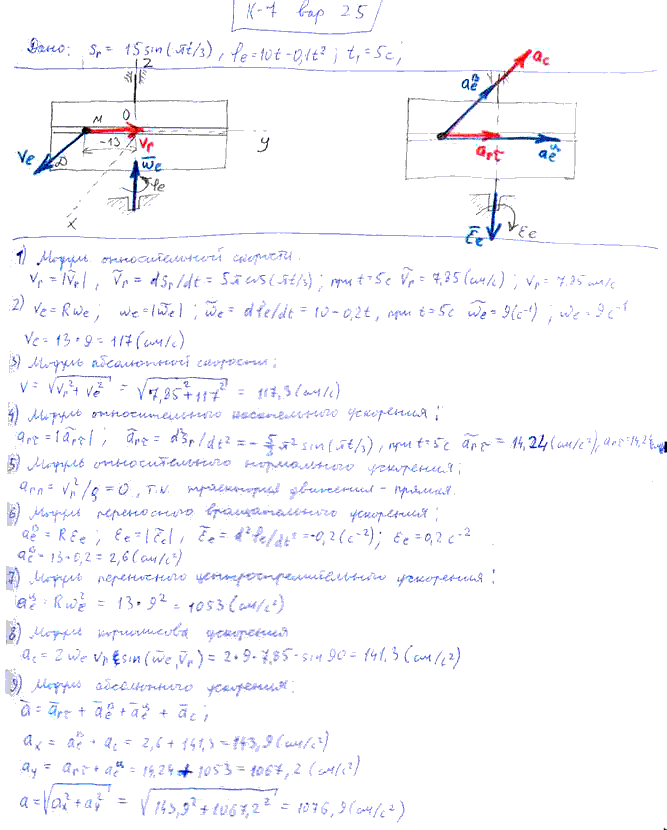 К-7 вар 25
Дано: Sr = 15 sin(πt/3), φe = 10t − 0,1t²; t₁ = 5c;
z
M
O
ac
aeᴮ
−13
Vr
y
Ve
ω̄e
φe
x
arτ
aeᶸ
ε̄e
εe
1) Модуль относительной скорости.
Vr = |V̄r|, Ṽr = dSr/dt = 5π cos(πt/3); при t=5c Ṽr = 7,85 (см/c); Vr = 7,85 см/c
2) Ve = Rωe; ωe = |ω̃e|; ω̃e = dφe/dt = 10 − 0,2t, при t=5c ω̃e = 9(c⁻¹); ωe = 9 c⁻¹
Ve = 13 · 9 = 117 (см/c)
3) Модуль абсолютной скорости:
V = √(Vr² + Ve²) = √(7,85² + 117²) = 117,3 (см/c)
4) Модуль относительного касательного ускорения:
arτ = |ãrτ|; ãrτ = d²Sr/dt² = − 5/3 π² sin(πt/3), при t=5c ãrτ = 14,24 (см/c²), arτ = 14,24
5) Модуль относительного нормального ускорения:
arn = Vr²/ρ = 0, т.к. траектория движения - прямая.
6) Модуль переносного вращательного ускорения:
aeᴮ = Rεe; εe = |ε̃e|, ε̃e = d²φe/dt² = −0,2 (c⁻²); εe = 0,2 c⁻²
aeᴮ = 13 · 0,2 = 2,6 (см/c²)
7) Модуль переносного центростремительного ускорения:
aeᶸ = Rωe² = 13 · 9² = 1053 (см/c²)
8) Модуль кориолисова ускорения
ac = 2 ωe Vr sin(ω̄e, V̄r) = 2 · 9 · 7,85 · sin 90 = 141,3 (см/c²)
9) Модуль абсолютного ускорения:
ā = ārτ + āeᴮ + āeᶸ + āc;
ax = aeᴮ + ac = 2,6 + 141,3 = 143,9 (см/c²)
ay = arτ + aeᶸ = 14,24 + 1053 = 1067,2 (см/c²)
a = √(ax² + ay²) = √(143,9² + 1067,2²) = 1076,9 (см/c²)